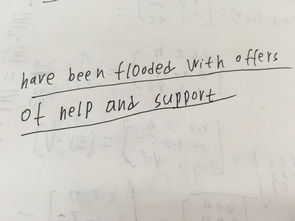 have been flooded with offers
of help and support